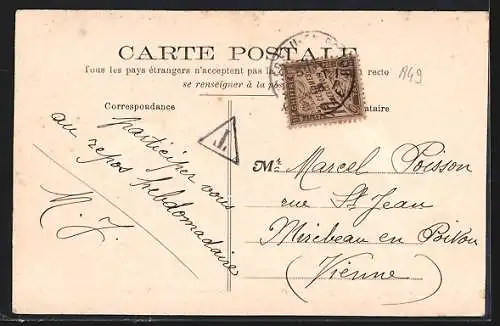 CARTE POSTALE
Tous les pays étrangers n'acceptent pas la recto
se renseigner à la po
Correspondance
ataire
A49
T
participez vous
au repos hebdomadaire
M. J.
Mr. Marcel Poisson
rue St Jean
Mirebeau en Poitou
(Vienne)